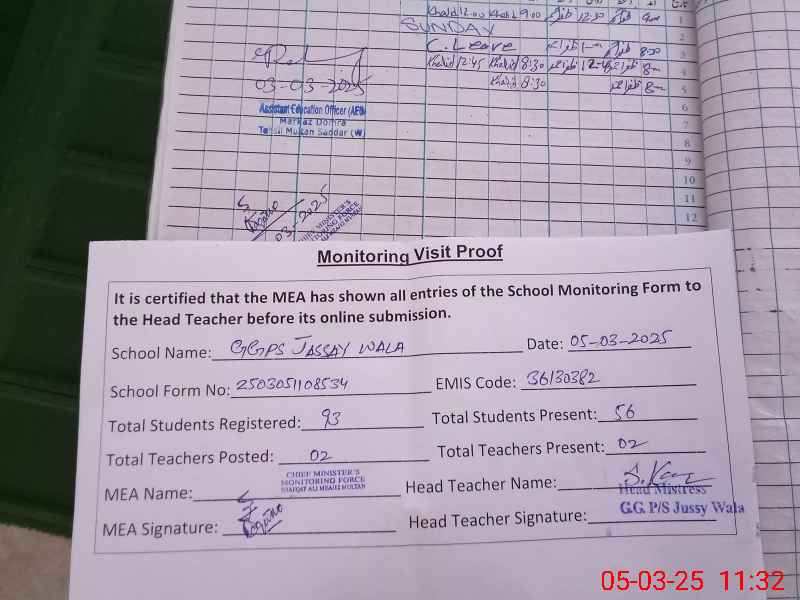 Khalid 12:00 Khalid 9:00
12:30
9:00
1
SUNDAY
2
C. Leave
8:00
3
Khalid 12:45 Khalid 8:30
12:45
8:00
4
Khalid 8:30
8:00
5
6
7
8
9
10
11
12
03-03-2025
Assistant Education Officer (AEO)
Markaz Domra
Tehsil Multan Saddar (W)
03-2025
CHIEF MINISTER'S
MONITORING FORCE
Monitoring Visit Proof
It is certified that the MEA has shown all entries of the School Monitoring Form to
the Head Teacher before its online submission.
School Name: GGPS JASSAY WALA Date: 05-03-2025
School Form No: 2503051108534 EMIS Code: 36130382
Total Students Registered: 93 Total Students Present: 56
Total Teachers Posted: 02 Total Teachers Present: 02
CHIEF MINISTER'S
MONITORING FORCE
MEA Name: Head Teacher Name:
Head Mistress
MEA Signature: Head Teacher Signature:
G.G. P/S Jussy Wala
05-03-25 11:32